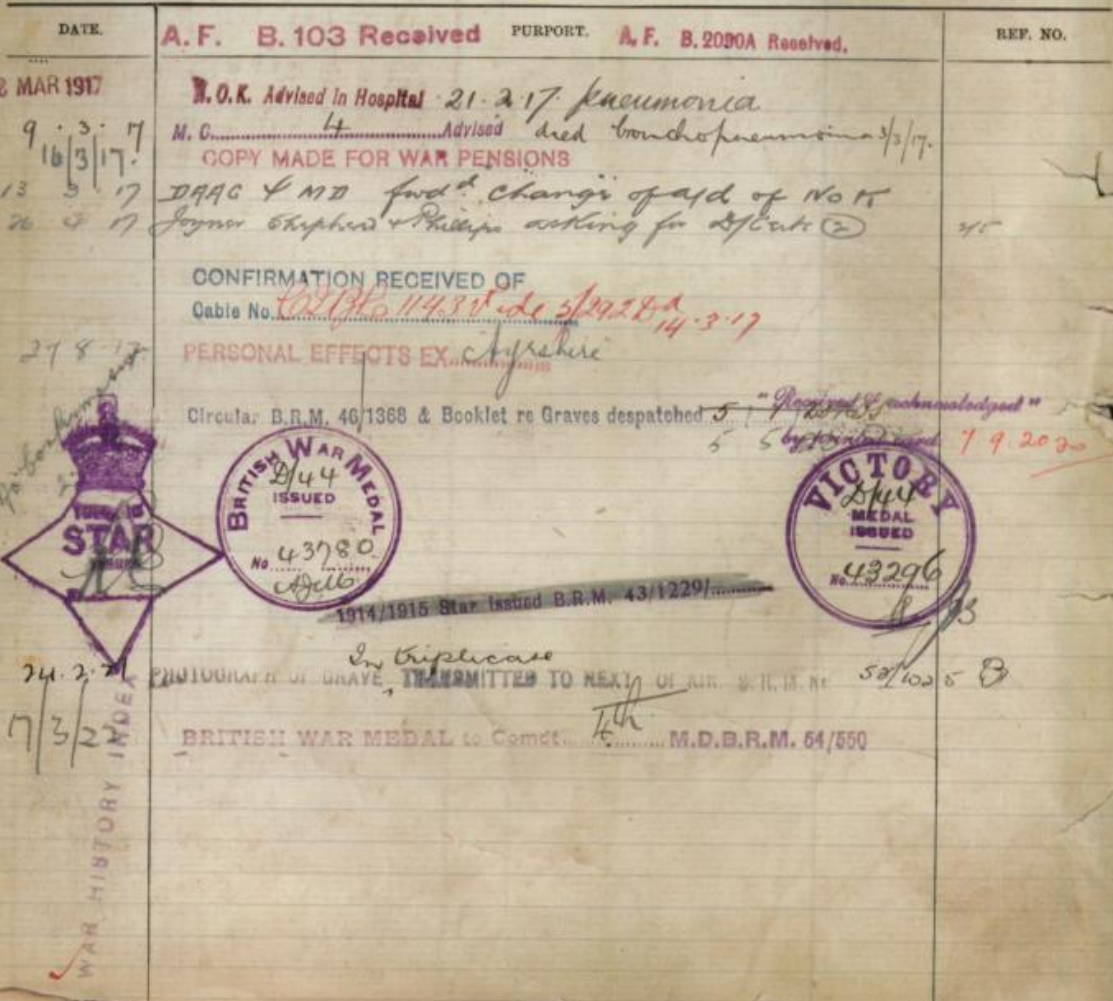 DATE. A. F. B. 103 Received PURPORT. A. F. B. 2090A Received. REF. NO.
MAR 1917
N.O.K. Advised in Hospital 21.2.17. pneumonia
9.3.17 M. C. 4 Advised died bronchopneumonia 3/3/17.
16/3/17 COPY MADE FOR WAR PENSIONS
13 3 17 DAAG 4 MD fwdd change of ad of NoK
26 17 Joyner Shepherd & Phillips asking for D/Cert (2)
CONFIRMATION RECEIVED OF
Cable No. 14.3.17
27 8 17 PERSONAL EFFECTS EX Ayrshire
Circular B.R.M. 46/1368 & Booklet re Graves despatched 5
"Received & acknowledged"
5 5 by printed card 7 9.2020
STAR
BRITISH WAR MEDAL
D/44
ISSUED
No 43780
VICTORY
D/44
MEDAL
ISSUED
No. 43296
1914/1915 Star Issued B.R.M. 43/1229/
In triplicate
24.2.21 PHOTOGRAPH OF GRAVE TRANSMITTED TO NEXT OF KIN. B.R.M. No 53/1025 B
17/3/22 BRITISH WAR MEDAL to Comdt. 4th M.D.B.R.M. 54/550
WAR HISTORY INDEX